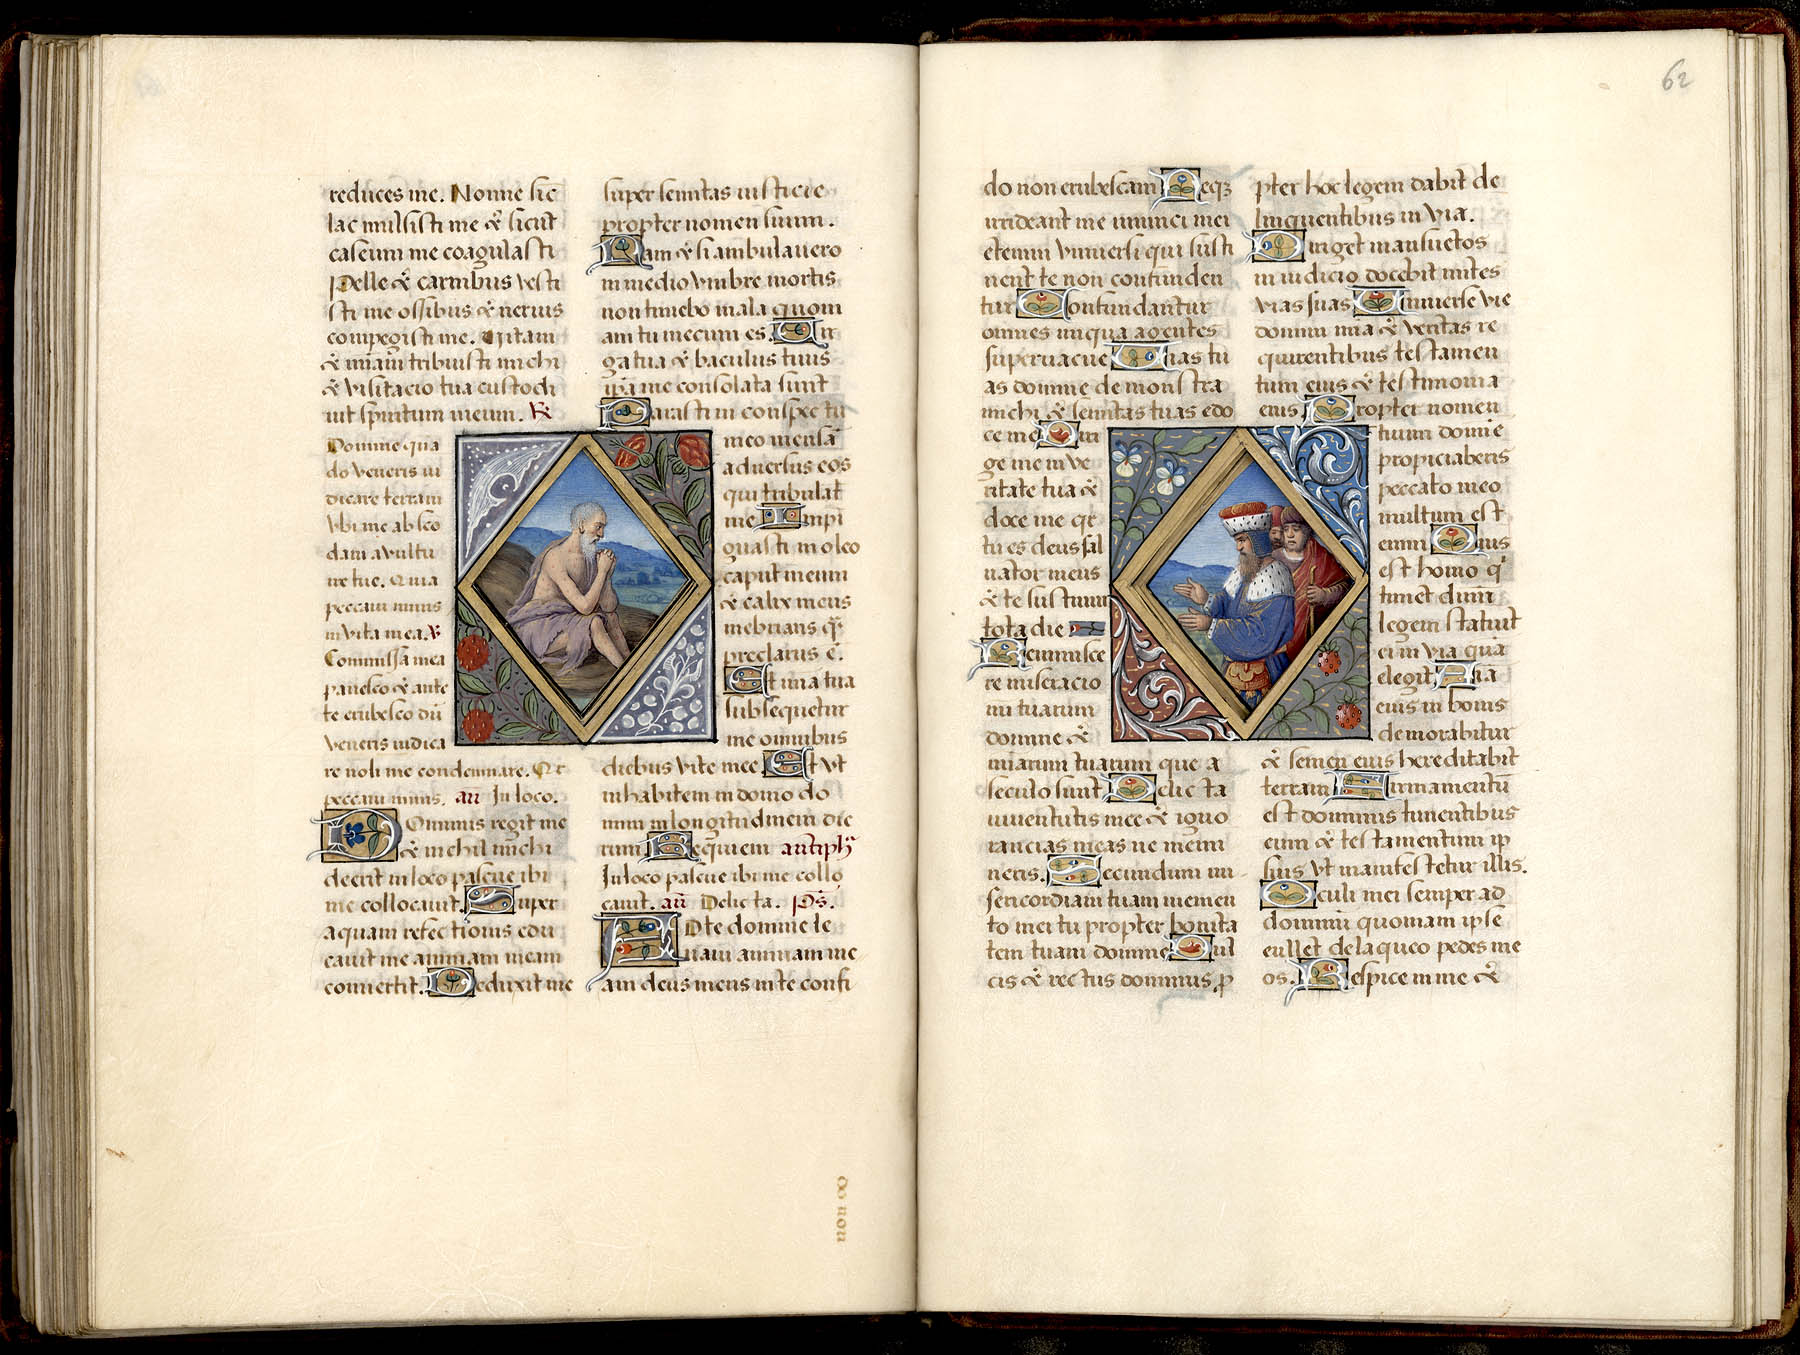 reduces me. Nonne sic
lac mulsisti me & sicut
caseum me coagulasti
Pelle & carnibus vesti
sti me ossibus & neruis
compegisti me. Vitam
& miam tribuisti michi
& visitacio tua custodi
uit spiritum meum. R̃
Domine qua
do veneris iu
dicare terram
vbi me absco
dam a vultu
ire tue. Quia
peccaui nimis
in vita mea. v̄
Commissa mea
pauesco & ante
te erubesco dū
veneris iudica
re noli me condemnare. Qr
peccaui nimis. añ In loco.
Dominus regit me
& nichil michi
deerit in loco pascue ibi
me collocauit. Super
aquam refectionis edu
cauit me animam meam
conuertit. Deduxit me
super semitas iusticie
propter nomen suum.
Nam & si ambulauero
in medio vmbre mortis
non timebo mala quoni
am tu mecum es. Vir
ga tua & baculus tuus
ipā me consolata sunt
Parasti in conspectu
meo mensā
aduersus eos
qui tribulāt
me Impi
guasti in oleo
caput meum
& calix meus
inebrians q̄
preclarus ē.
Et mia tua
subsequetur
me omnibus
diebus vite mee Et vt
inhabitem in domo do
mini in longitudinem die
rum Requiem antiph̄
In loco pascue ibi me collo
cauit. añ Delicta. ps̄.
Ad te domine le
uaui animam me
am deus meus in te confi
62
do non erubescam Neqꝫ
irrideant me inimici mei
etenim vniuersi qui susti
nent te non confunden
tur Confundantur
omnes iniqua agentes
superuacue Vias tu
as domine demonstra
michi & semitas tuas edo
ce me Diri
ge me in ve
ritate tua &
doce me qr
tu es deus sal
uator meus
& te sustinui
tota die
Reminisce
re miseracio
nu tuarum
domine &
miarum tuarum que a
seculo sunt Delicta
iuuentutis mee & igno
rancias meas ne memi
neris. Secundum mi
sericordiam tuam memen
to mei tu propter bonita
tem tuam domine Dul
cis & rectus dominus ꝓ
pter hoc legem dabit de
linquentibus in via.
Diriget mansuetos
in iudicio docebit mites
vias suas Vniuerse vie
domini mia & veritas re
quirentibus testamen
tum eius & testimonia
eius Propter nomen
tuum domie
propiciaberis
peccato meo
multum est
enim Quis
est homo q̄
timet dum
legem statuit
ei in via quā
elegit Aia
eius in bonis
demorabitur
& semen eius hereditabit
terram Firmamentū
est dominus timentibus
eum & testamentum ip
sius vt manifestetur illis.
Oculi mei semper ad
dominū quoniam ipse
euellet de laqueo pedes me
os. Respice in me &
& non